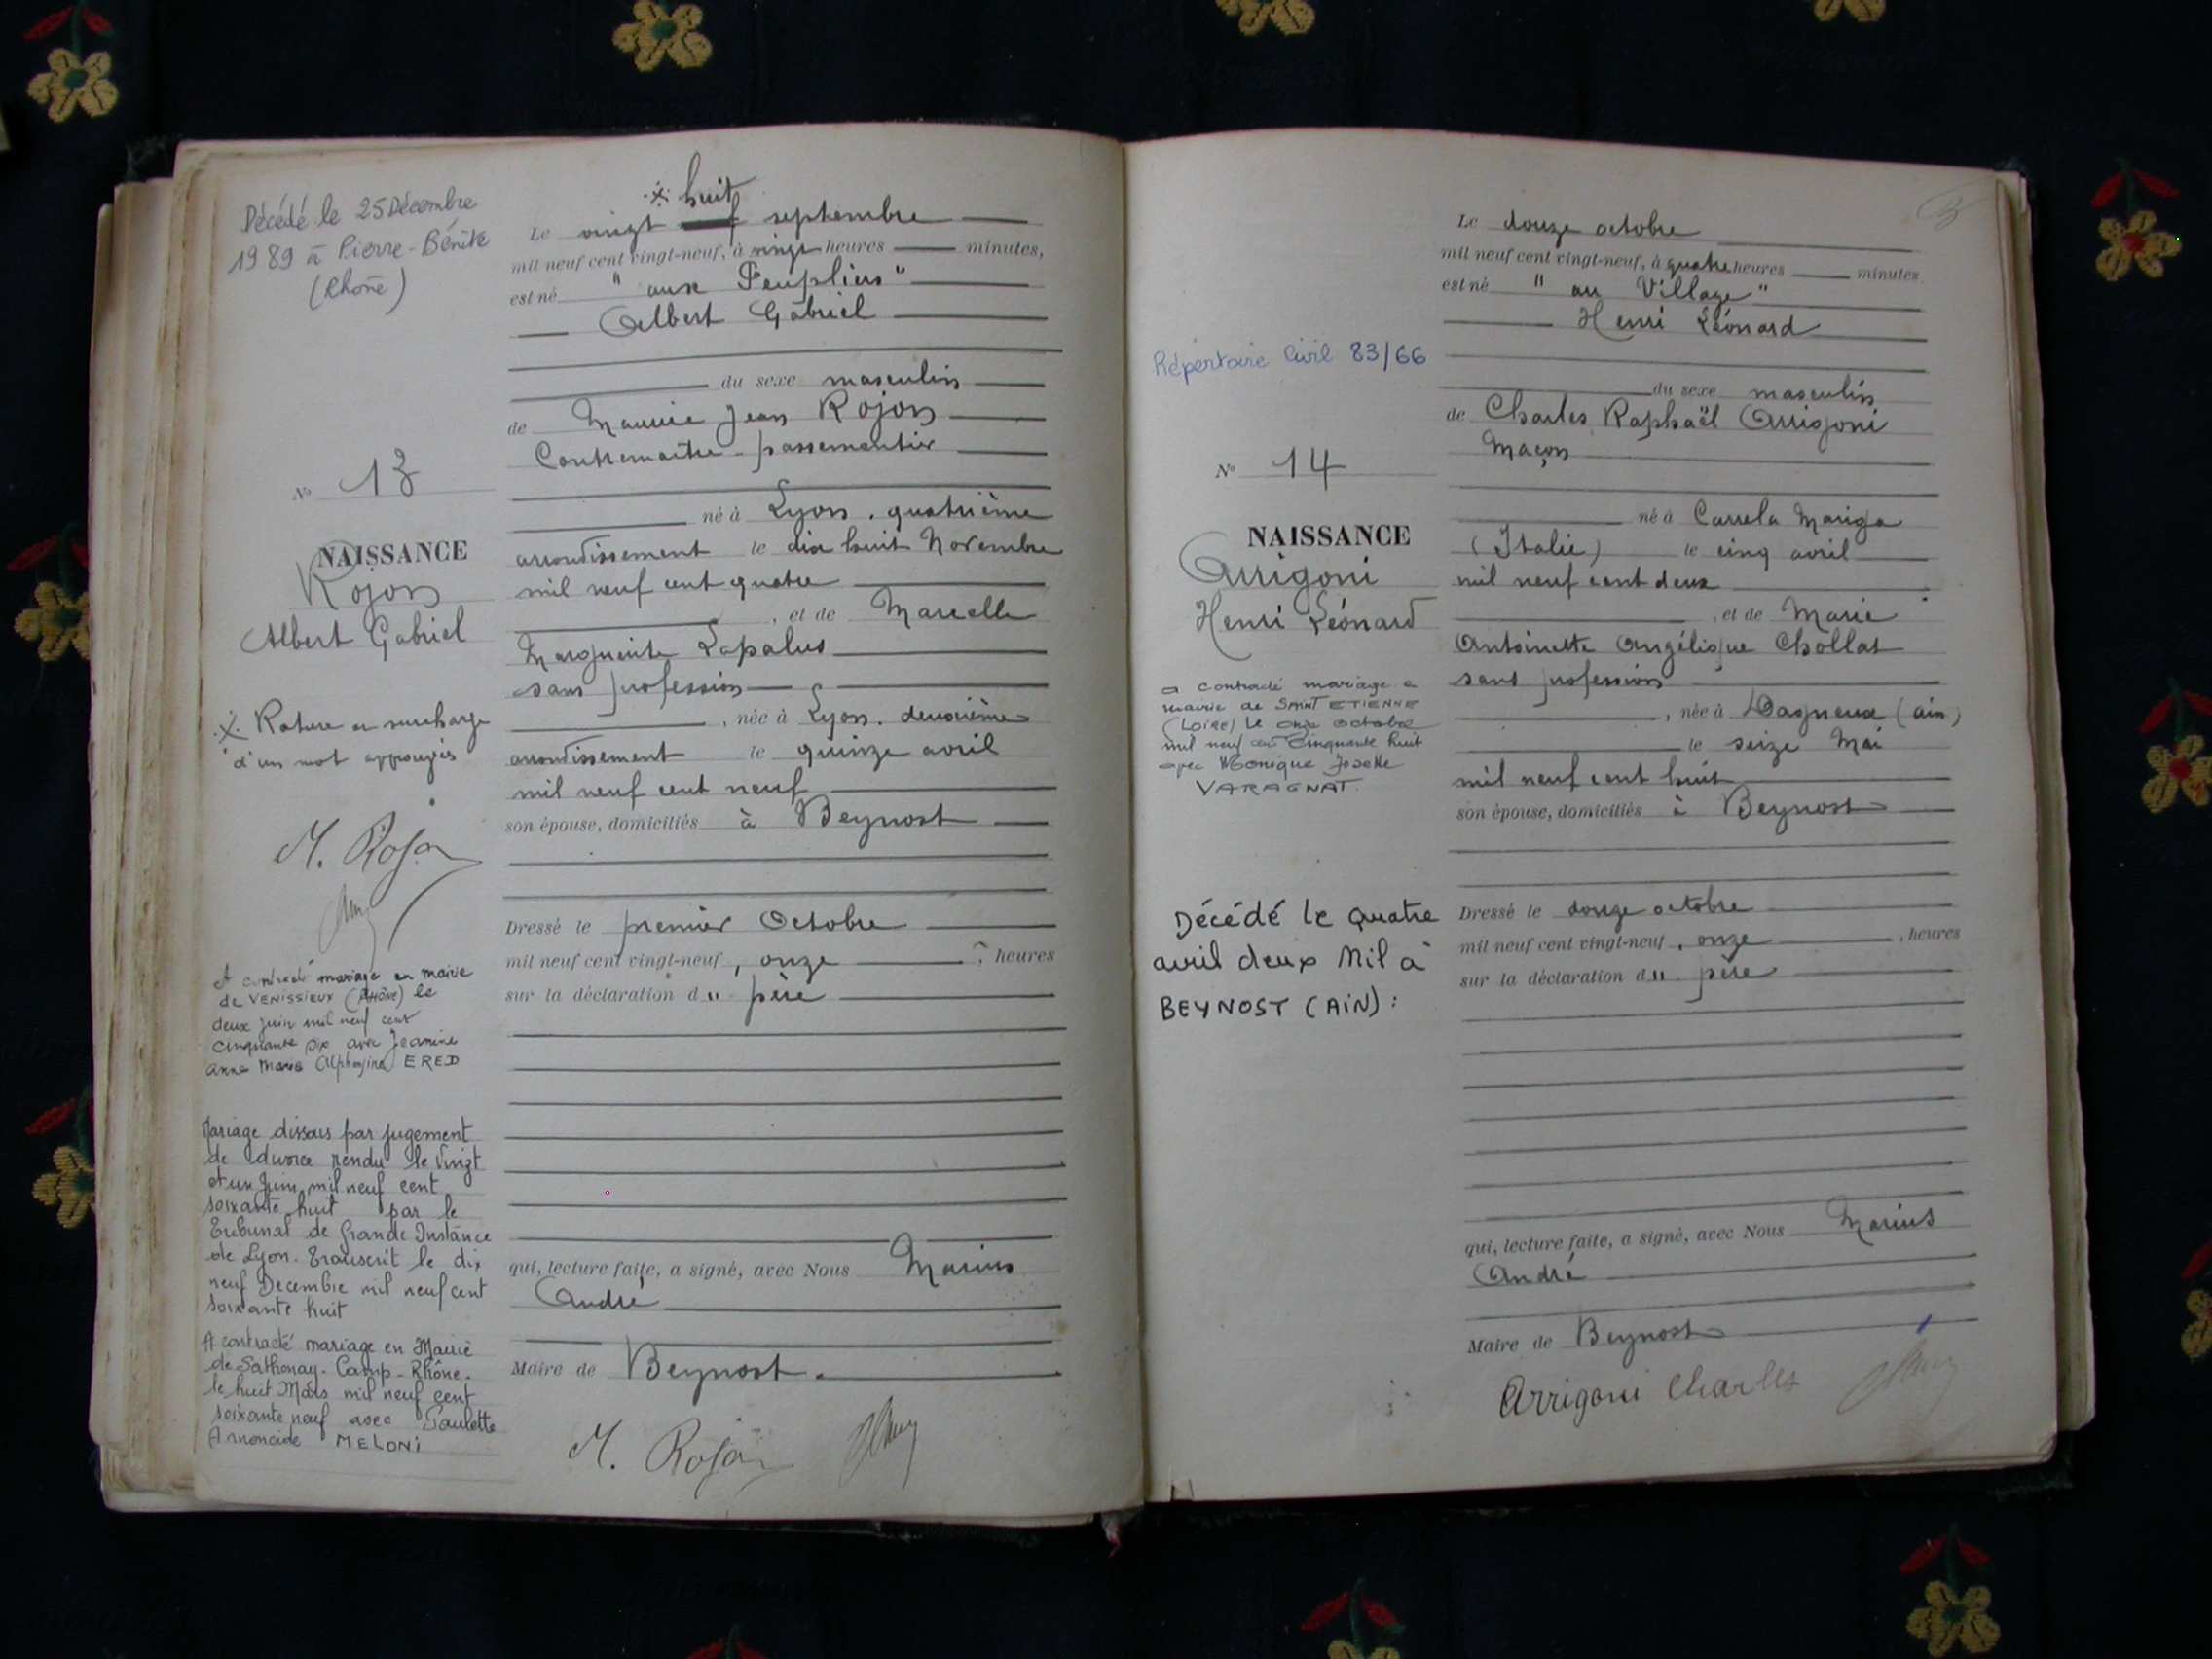 Décédé le 25 Décembre
1989 à Pierre-Bénite
(Rhône)
N° 13
NAISSANCE
Rojon
Albert Gabriel
Rature ou surcharge
d'un mot approuvés
M. Rojon
A contracté mariage en mairie
de VENISSIEUX (RHÔNE) le
deux juin mil neuf cent
cinquante six avec Jeanine
Anne Marie Alphonsine ERED
Mariage dissous par jugement
de divorce rendu le vingt
et un Juin mil neuf cent
soixante huit par le
Tribunal de Grande Instance
de Lyon. Transcrit le dix
neuf Decembre mil neuf cent
soixante huit
A contracté mariage en Mairie
de Sathonay-Camp-Rhône-
le huit Mars mil neuf cent
soixante neuf avec Paulette
Annonciade MELONI
huit
Le vingt septembre
mil neuf cent vingt-neuf, à heures minutes,
est né "aux Peupliers"
Albert Gabriel
du sexe masculin
de Maurice Jean Rojon
Contremaître-passementier
né à Lyon. quatrième
arrondissement le dix huit Novembre
mil neuf cent quatre
, et de Marcelle
Marguerite Lapalus
sans profession
, née à Lyon. deuxième
arrondissement le quinze avril
mil neuf cent neuf
son épouse, domiciliés à Beynost
Dressé le premier Octobre
mil neuf cent vingt-neuf, onze , heures
sur la déclaration du père
qui, lecture faite, a signé, avec Nous Marius
André
Maire de Beynost.
M. Rojon
Répertoire Civil 83/66
N° 14
NAISSANCE
Arrigoni
Henri Léonard
a contracté mariage a
mairie de SAINT ETIENNE
(LOIRE) le onze octobre
mil neuf cent cinquante huit
avec Monique Josette
VARAGNAT.
Décédé le quatre
avril deux Mil à
BEYNOST (AIN):
Le douze octobre
mil neuf cent vingt-neuf, à quatre heures minutes
est né "au Village"
Henri Léonard
du sexe masculin
de Charles Raphaël Arrigoni
Maçon
né à
(Italie) le cinq avril
mil neuf cent deux
, et de Marie
Antoinette Angélique Chollat
sans profession
, née à Dagneux (ain)
le seize Mai
mil neuf cent huit
son épouse, domiciliés à Beynost
Dressé le douze octobre
mil neuf cent vingt-neuf, onze , heures
sur la déclaration du père
qui, lecture faite, a signé, avec Nous Marius
André
Maire de Beynost
Arrigoni Charles